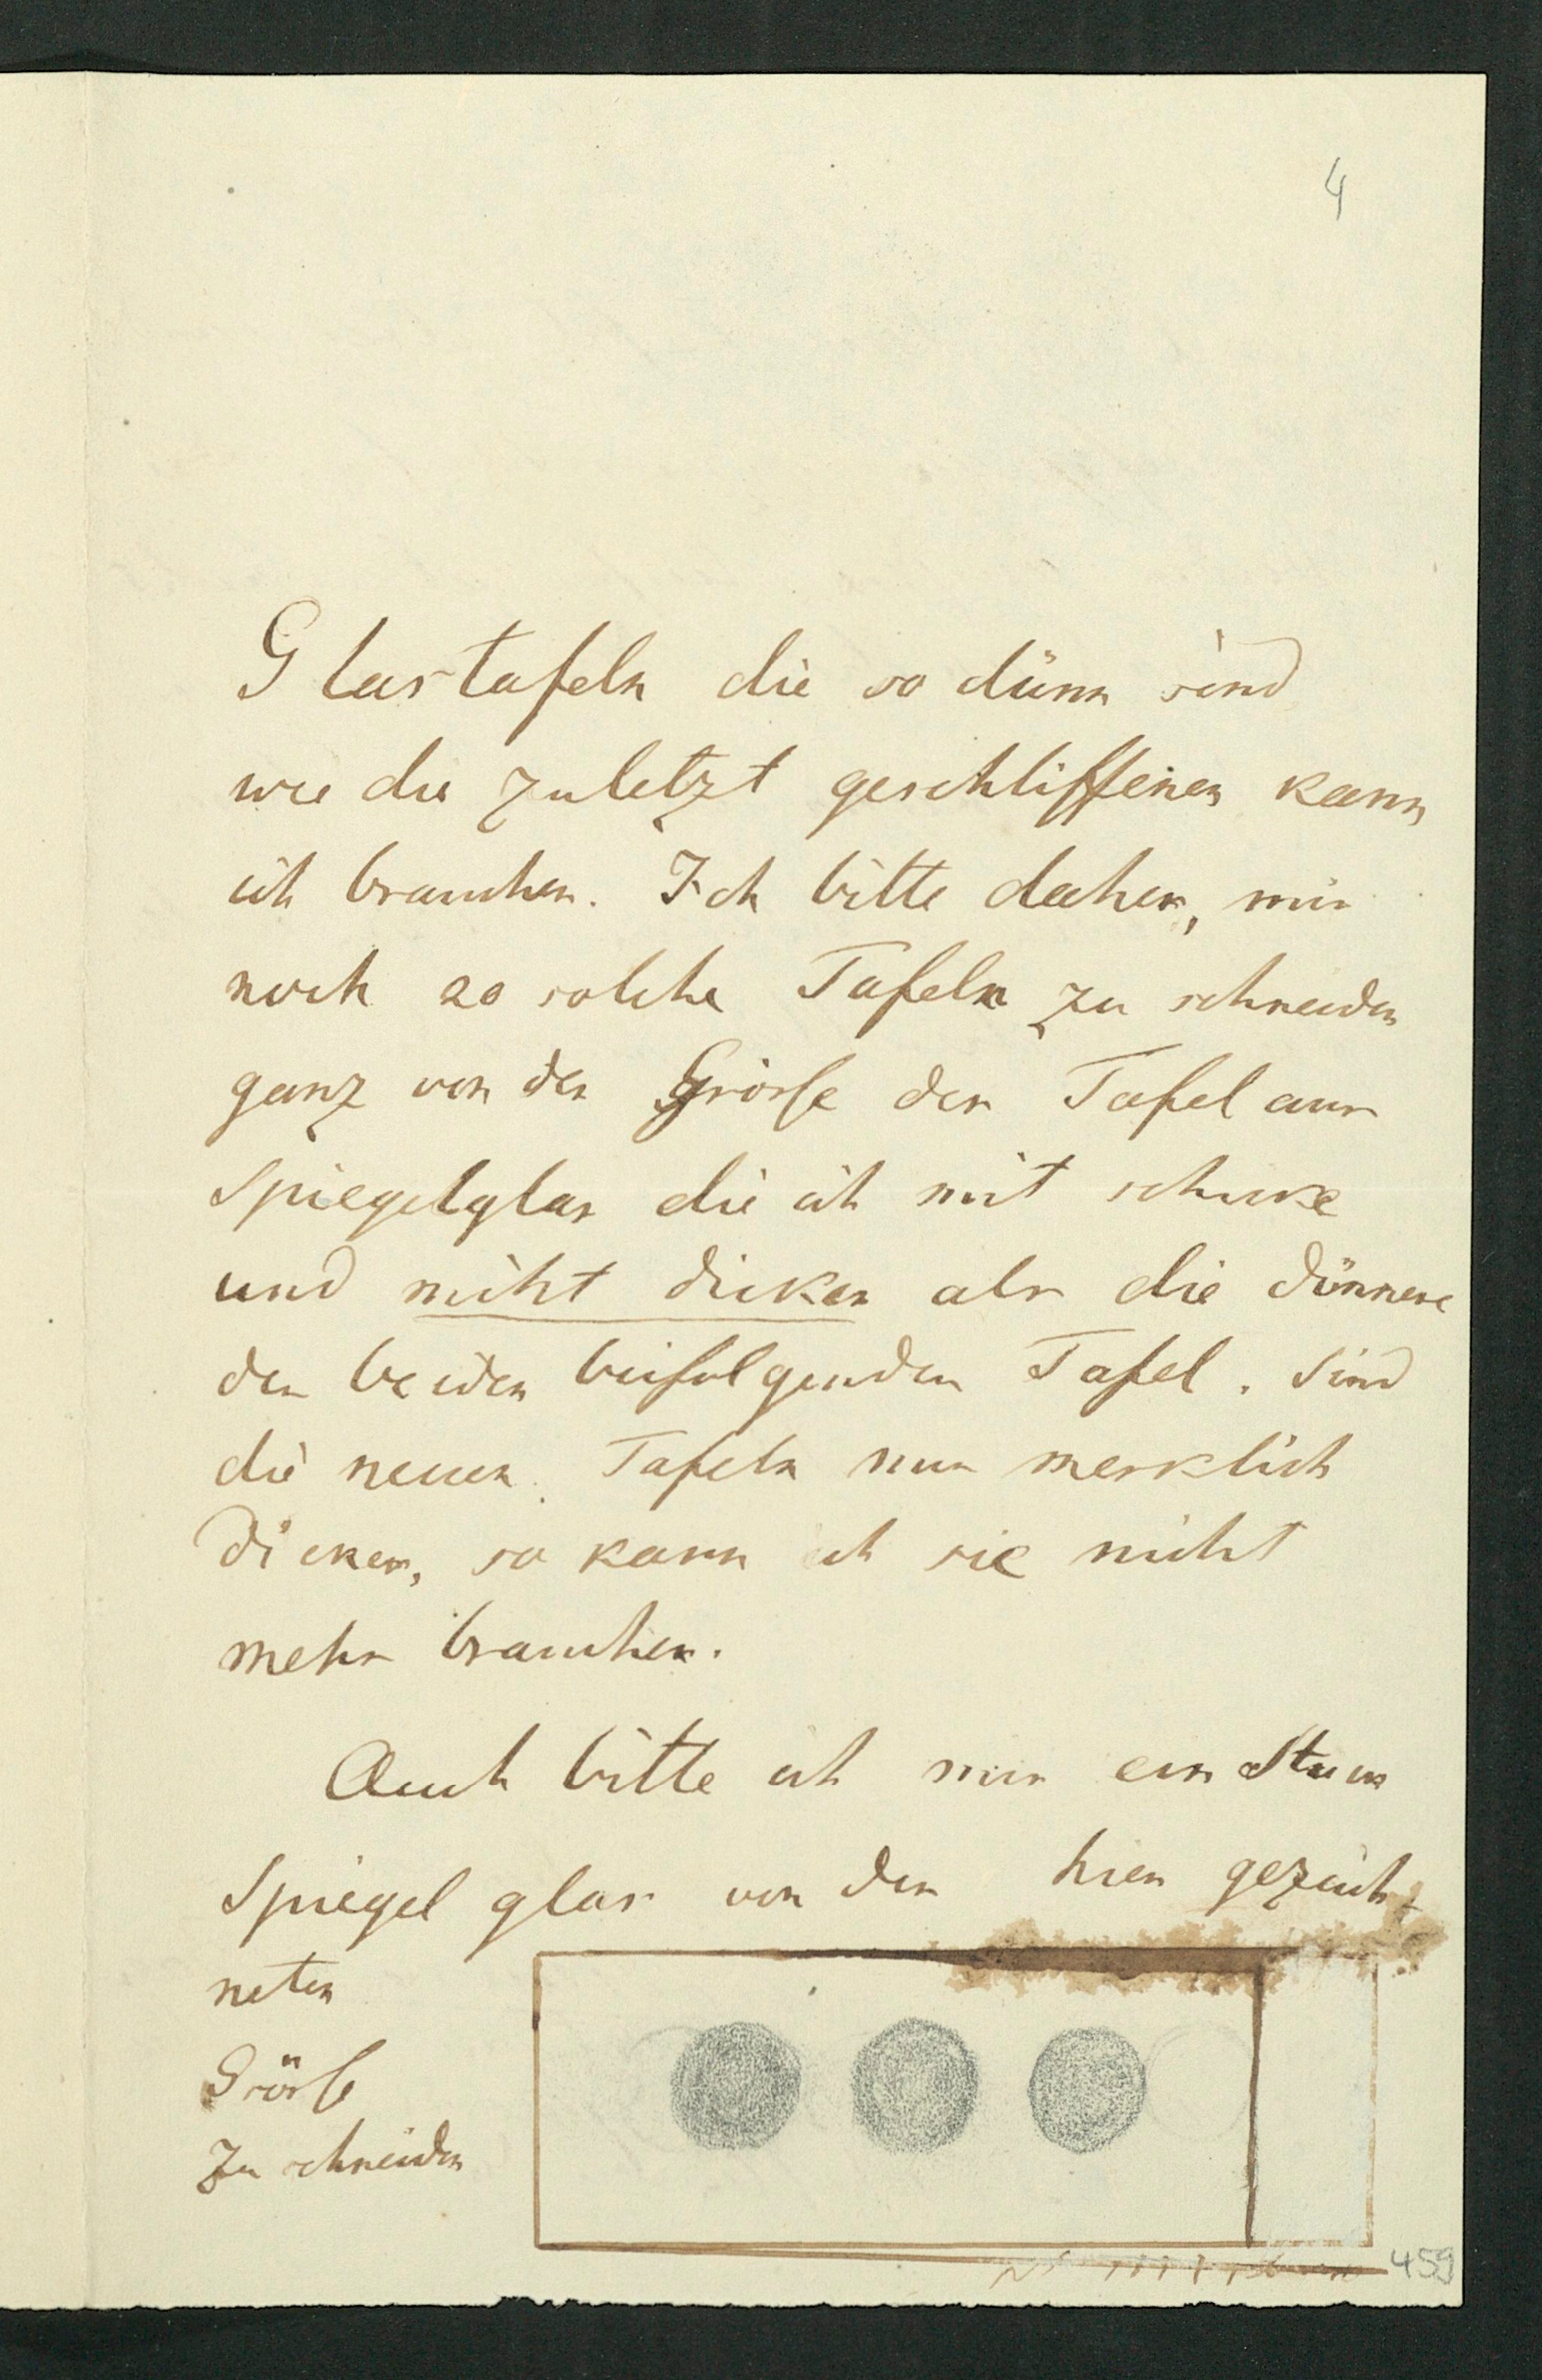 4
Glastafeln die so dünn sind
wie die zuletzt geschliffenen kann
ich brauchen. Ich bitte daher, mir
noch 20 solche Tafeln zu schneiden
ganz von der Grösse der Tafel aus
Spiegelglas die ich mit schicke
und nicht dicker als die dünnere
der beiden beifolgenden Tafel. Sind
die neuen Tafeln nur merklich
dicker, so kann ich sie nicht
mehr brauchen.
Auch bitte ich mir ein Stück
Spiegel glas von der hier gezeich
neten
Grösse
zu schneiden
459